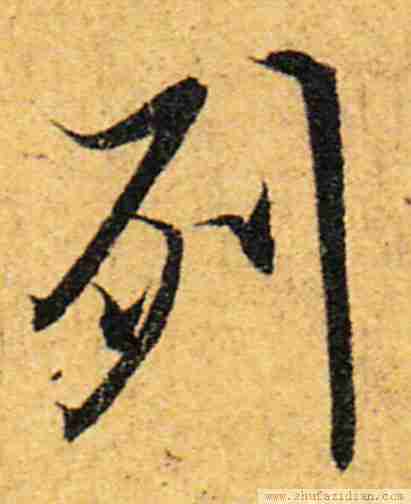 列
www.zhufazidian.com